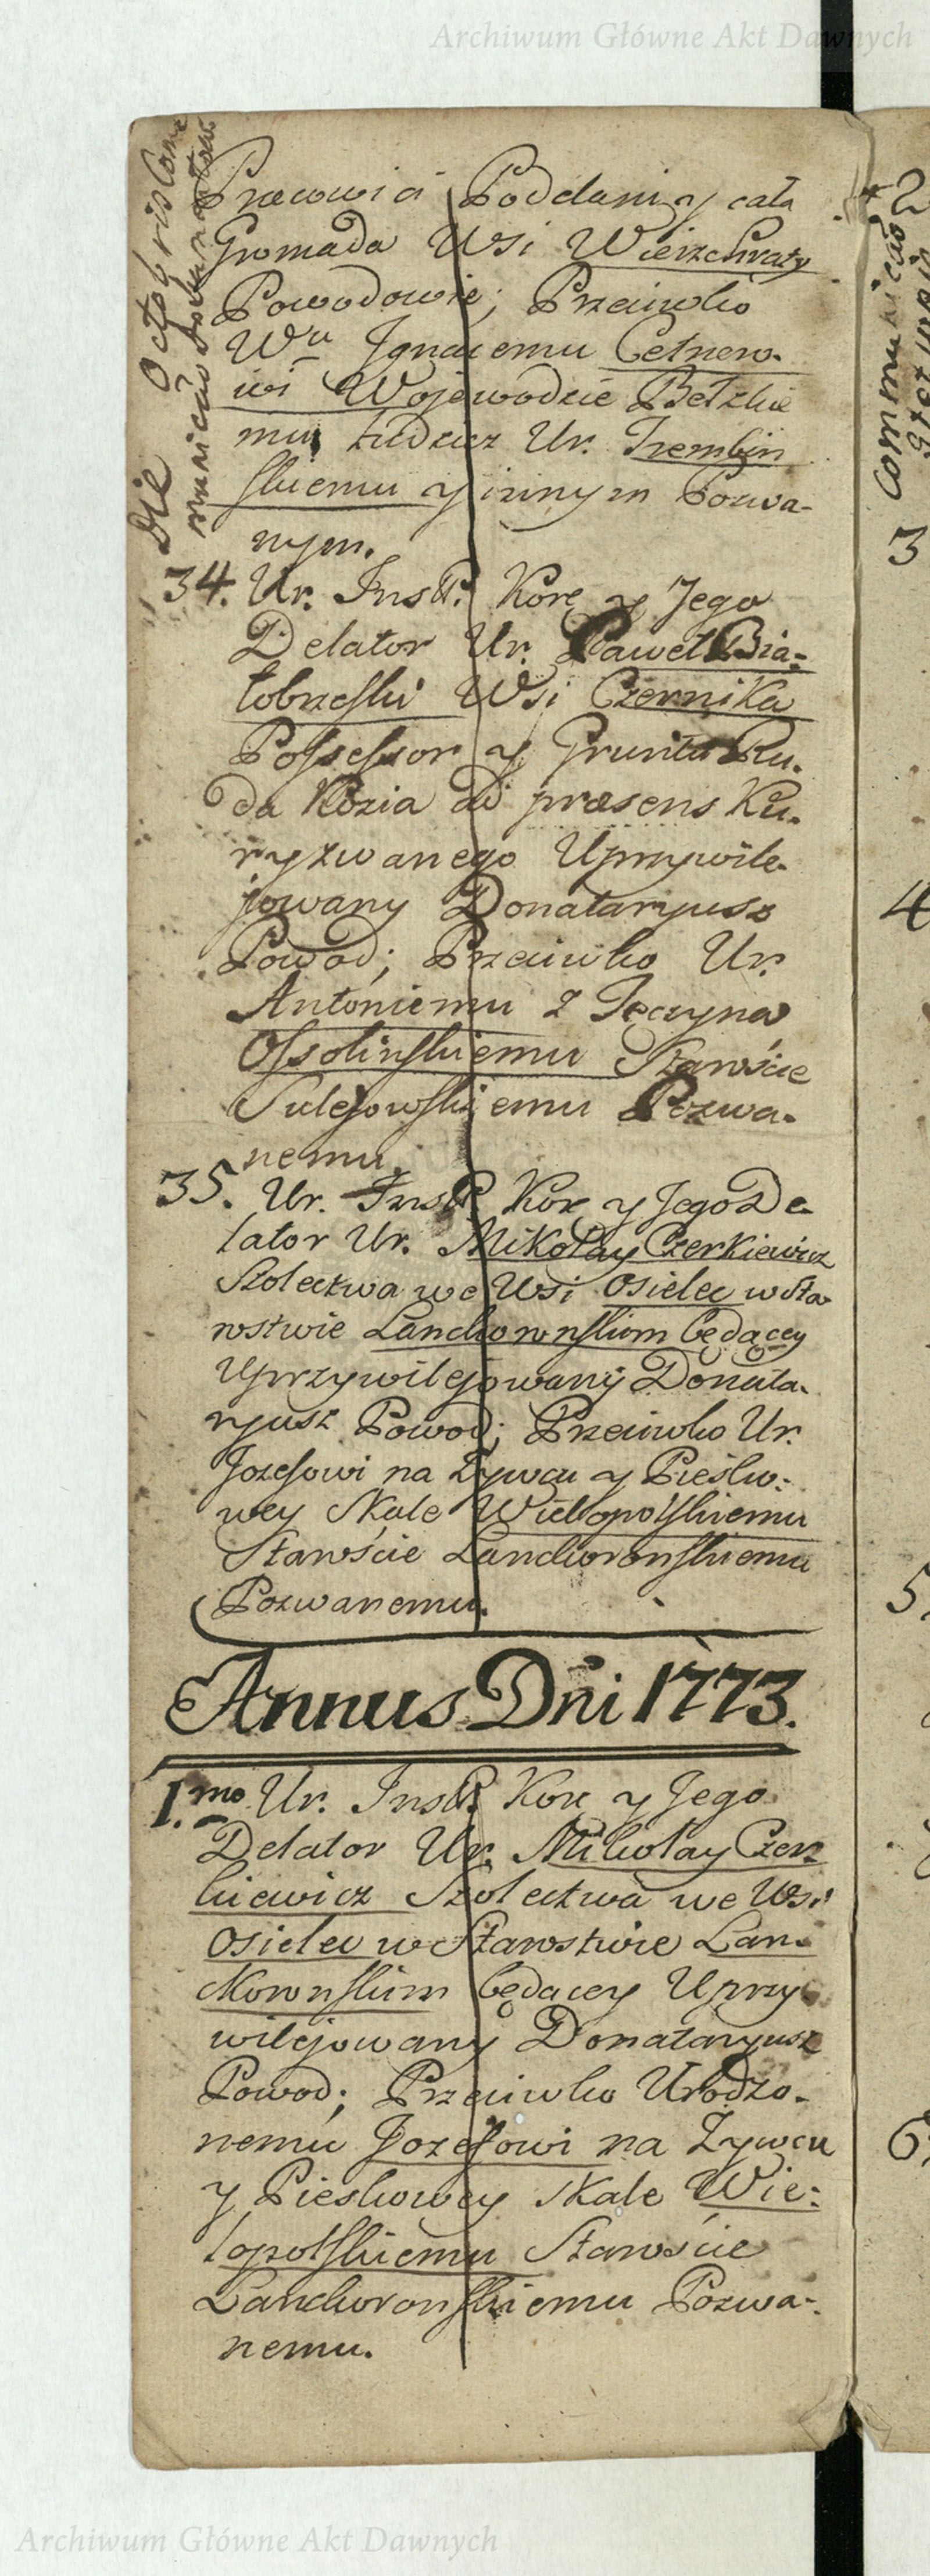 Archiwum Główne Akt Dawnych
Pracowici Poddani y cała
Gromada Wsi Wierzchraty
Powodowie; Przeciwko
Wu Jgnacemu Cetnero-
wi Woiewodzie Bełzkie
mu tudziez Ur. Trembin
skiemu y innym Pozwa-
nym.
34. Ur. Inst. Kor. y Jego
Delator Ur. Paweł Bia-
łobrzeski Wsi Czernika
Possessor y Gruntu Ru-
da Kozia ad præsens Ku-
ryzwanego Uprzywile-
jowany Donataryusz
Powod; Przeciwko Ur.
Antoniemu z Tęczyna
Ossolinskiemu Staroście
Sulejowskiemu Pozwa-
nemu.
35. Ur. Inst. Kor. y Jego De-
lator Ur. Mikołay Czerkiewicz
Szolectwa we Wsi Osielec w Sta-
rostwie Lanckorunskim będącey
Uprzywilejowany Donata-
ryusz Powod; Przeciwko Ur.
Jozefowi na Zywcu y Pieśko-
wey Skale Wielopolskiemu
Staroście Lanckoronskiemu
Pozwanemu.
Annus Dni 1773.
1.mo Ur. Inst. Kor. y Jego
Delator Ur. Mikołay Czer-
kiewicz Szolectwa we Wsi
Osielec w Starostwie Lan-
ckorunskim będacey Uprzy-
wilejowany Donataryusz
Powod; Przeciwko Urodzo-
nemu Jozefowi na Zywcu
y Pieskowey Skale Wie-
lopolskiemu Staroście
Lanckoronskiemu Pozwa-
nemu.
Die Octobris
2
3
4
5.
6.
Archiwum Główne Akt Dawnych